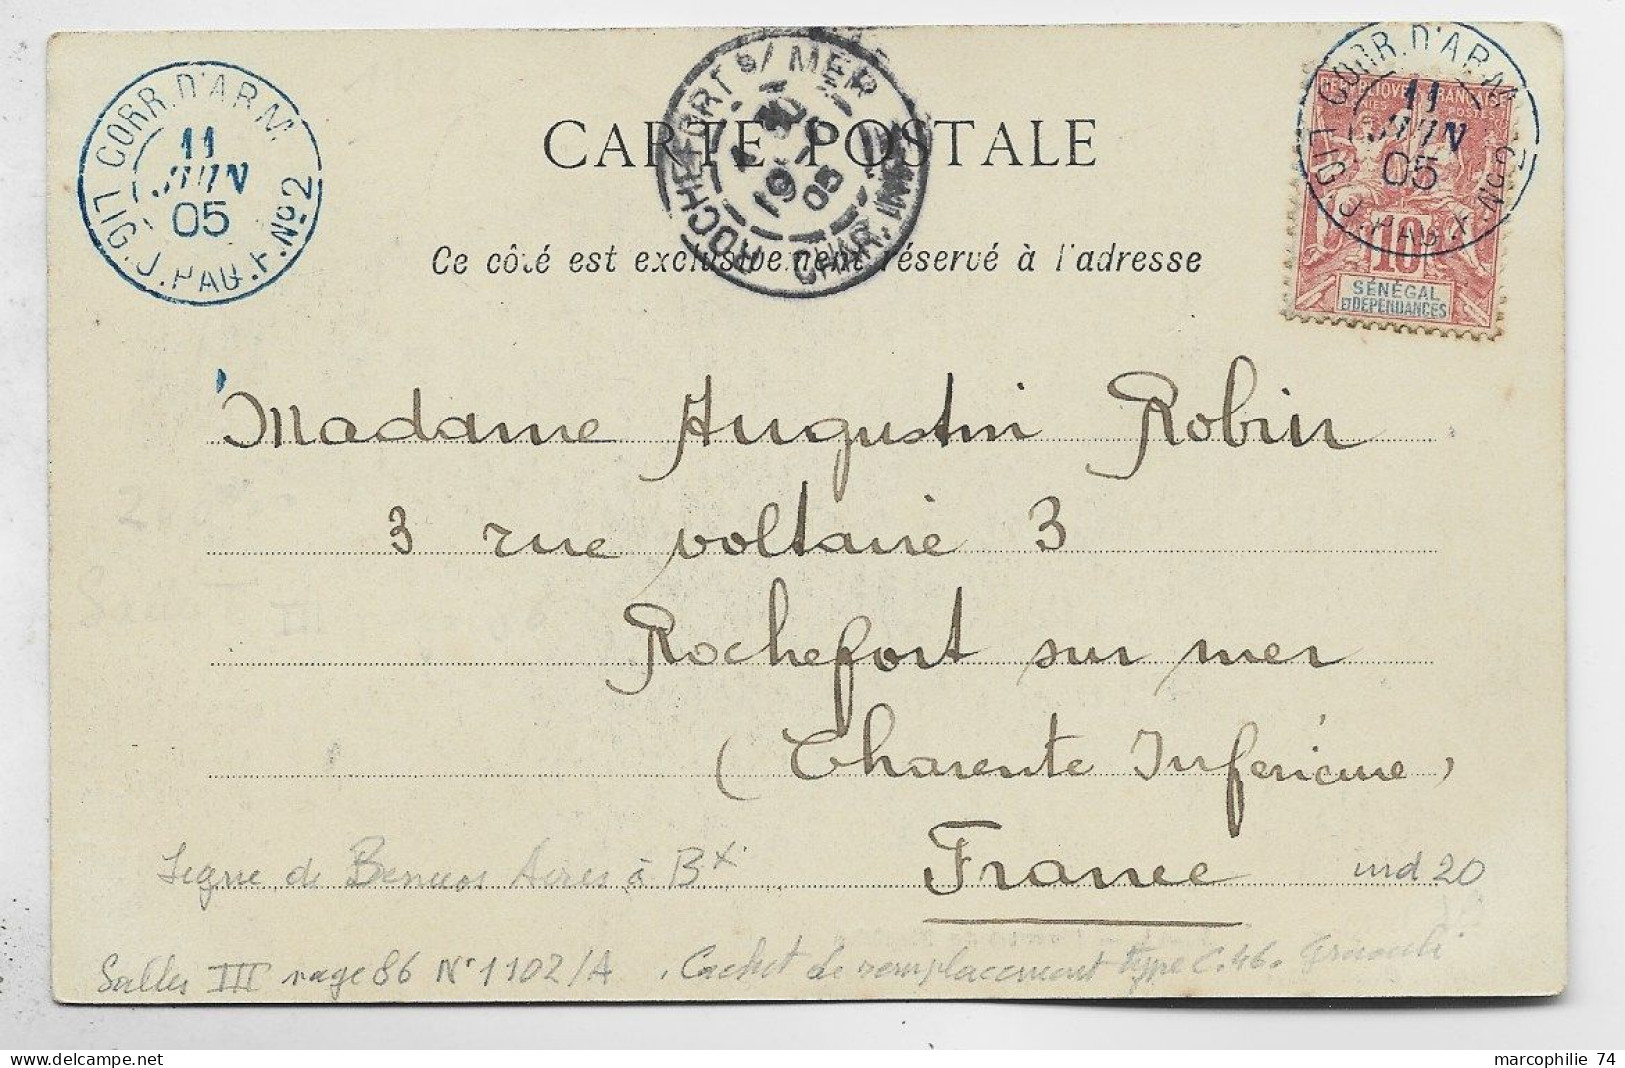 CORR. D'ARM.
11
JUIN
05
LIG. J. PAQ. F. No 2
ROCHEFORT S/ MER
19 05
CHAR. INF
CORR. D'ARM
11
JUIN
05
LIG. J. PAQ. F. No 2
REPUBLIQUE FRANÇAISE
10
SÉNÉGAL
ET DÉPENDANCES
CARTE POSTALE
Ce côté est exclusivement réservé à l'adresse
Madame Augustin Robin
3 rue voltaire 3
Rochefort sur mer
(Charente Inferieure)
France
Ligne de Buenos Aires à Bx
ind 20
Salles III page 86 N° 1102/A. Cachet de remplacement type C.46.
marcophilie 74